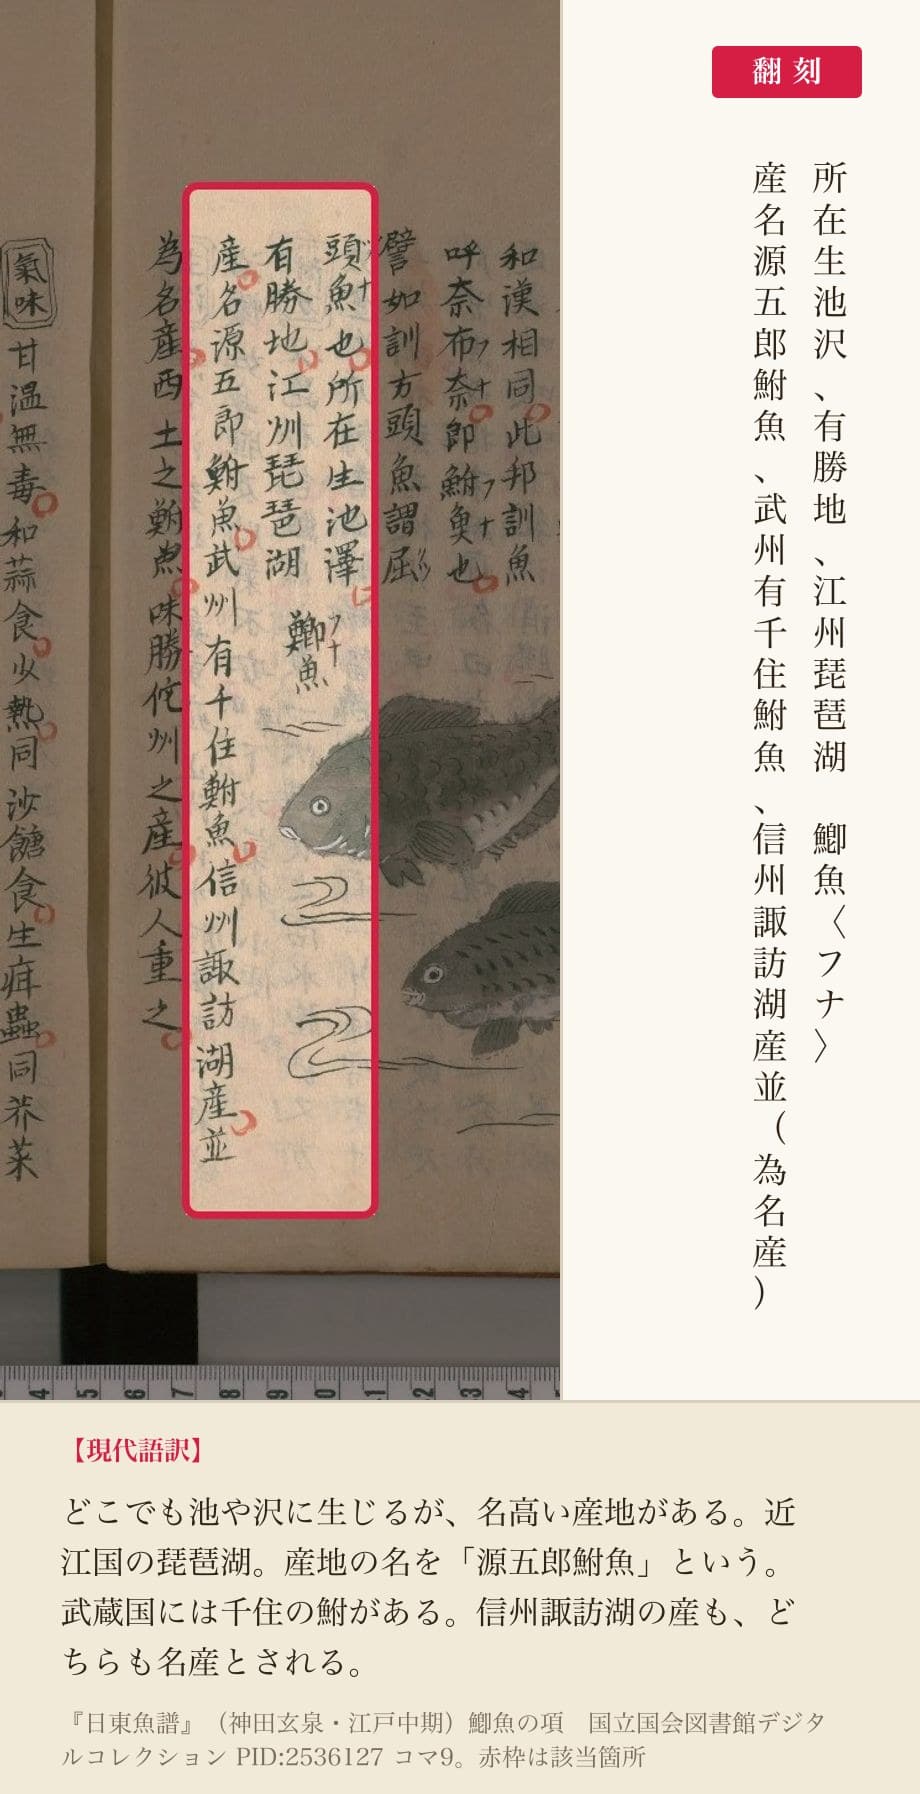 和漢相同此邦訓魚
呼奈布奈即鮒魚也
フナフナ
譬如訓方頭魚謂屈
頭魚也所在生池澤
有勝地江州琵琶湖
鯽魚
フナ
産名源五郎鮒魚武州有千住鮒魚信州諏訪湖産並
為名産西土之鮒魚味勝佗州之産彼人重之
氣味
甘温無毒和蒜食少熱同沙餹食生疳蟲同芥菜
4 5 6 7 8 9 10 11 12 13 14
翻刻
所在生池沢、有勝地、江州琵琶湖　鯽魚〈フナ〉
産名源五郎鮒魚、武州有千住鮒魚、信州諏訪湖産並(為名産)
【現代語訳】
どこでも池や沢に生じるが、名高い産地がある。近
江国の琵琶湖。産地の名を「源五郎鮒魚」という。
武蔵国には千住の鮒がある。信州諏訪湖の産も、ど
ちらも名産とされる。
『日東魚譜』（神田玄泉・江戸中期）鯽魚の項　国立国会図書館デジタ
ルコレクション PID:2536127 コマ9。赤枠は該当箇所